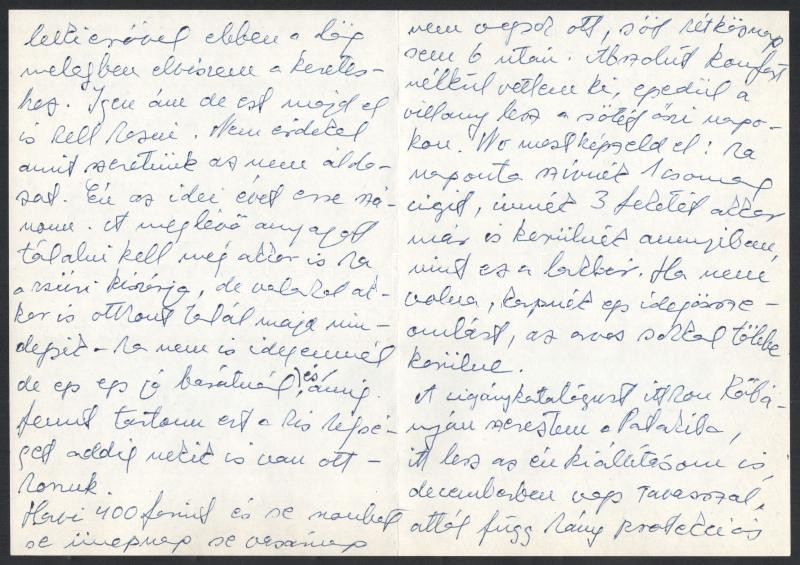 ebben a dög
melegben elviszem a keretes-
hez. Igen ám de ezt majd el
is kell hozni. Nem érdekel
amit szeretünk az nem áldo-
zat. Én az idei évet erre szá-
nom. A meglévő anyagot
tálalni kell még akkor is ha
a zsűri kizárja, de valahol ak-
kor is otthont talál majd min-
degyik - ha nem is idegennél
de egy egy jó barátnál, és amíg
fenntartom ezt a kis helysé-
get addig nekik is van ott-
honuk.
Havi 400 forint és se szombat
se ünnepnap se vasárnap
nem vagyok ott, sőt hétköznap
sem 6 után. Abszolut komfort
nélkül vettem ki, egyedül a
villany lesz a sötét őszi napo-
kon. No most képzeld el: ha
naponta szívnék 1 csomag
cigit, innék 3 felelét akkor
már is kerülnék annyiban,
mint ez a lakbér. Ha nem
volna, kapnék egy idegössze-
omlást, az orvos sokkal többe
kerülne.
A cigánykatalógust itthon Kőbá-
nyán szereztem a Patakiba,
itt lesz az én kiállításom is,
decemberben vagy tavasszal,
attól függ hány protekciós